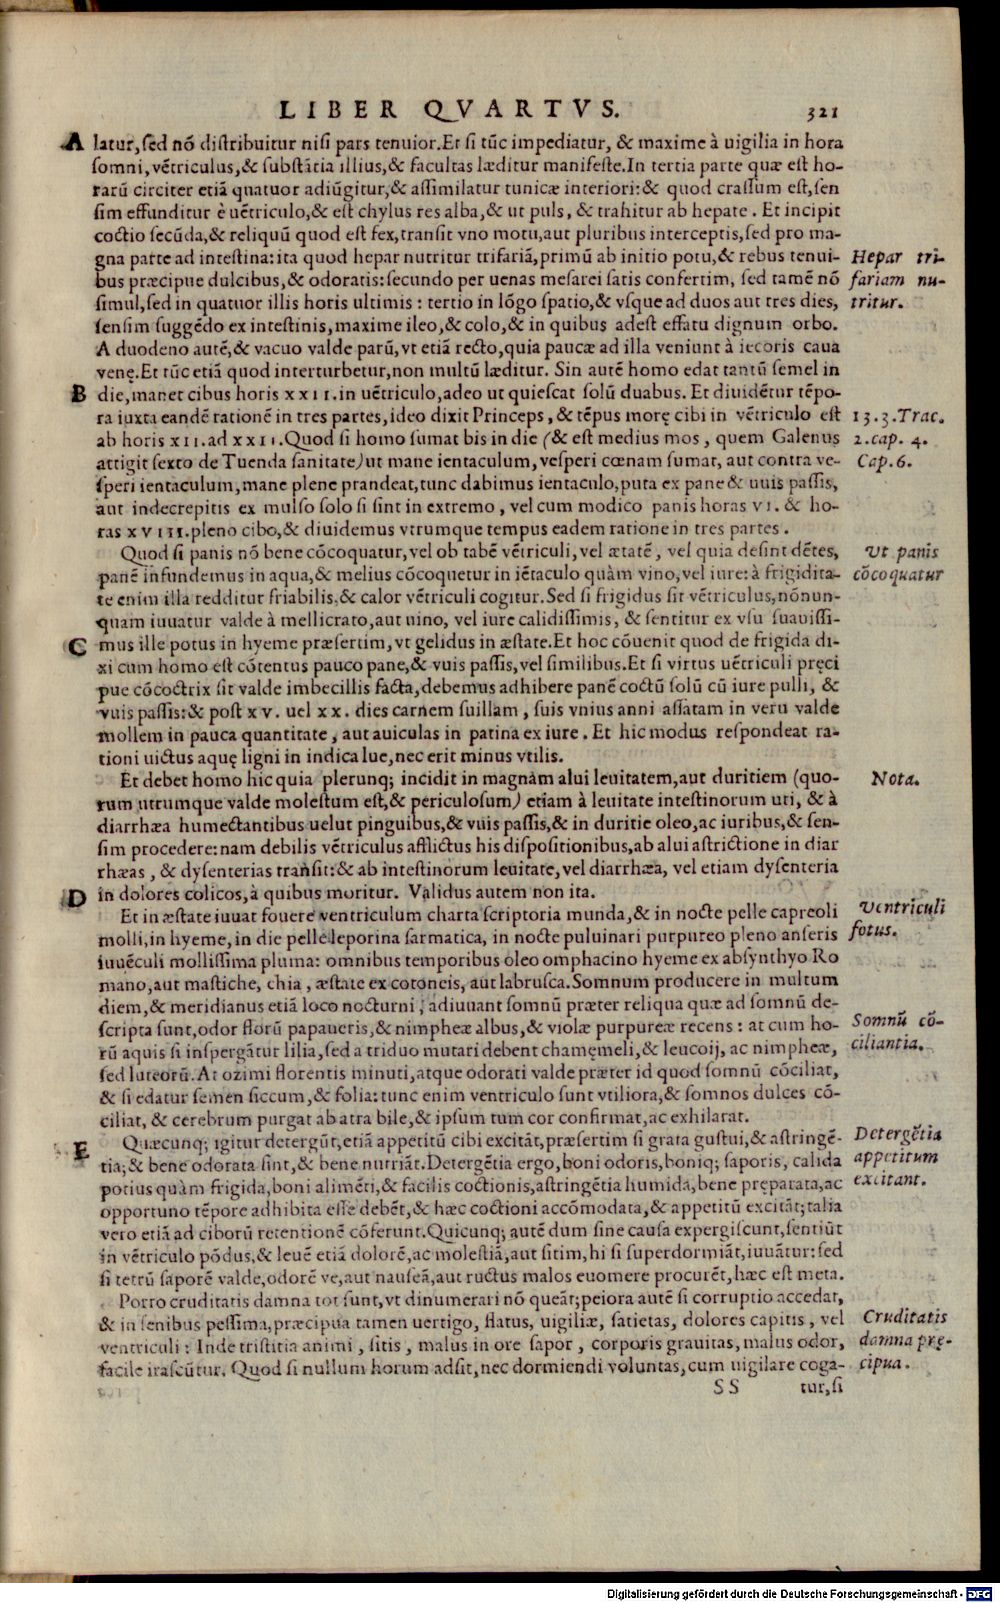 LIBER QVARTVS. 321
A latur, sed nõ distribuitur nisi pars tenuior. Et si tũc impediatur, & maxime à uigilia in hora
somni, vẽtriculus, & substãtia illius, & facultas læditur manifeste. In tertia parte quæ est ho-
rarũ circiter etiã quatuor adiũgitur, & assimilatur tunicæ interiori: & quod crassum est, sen
sim effunditur è uẽtriculo, & est chylus res alba, & ut puls, & trahitur ab hepate. Et incipit
coctio secũda, & reliquũ quod est fex, transit vno motu, aut pluribus interceptis, sed pro ma-
gna parte ad intestina: ita quod hepar nutritur trifariã, primũ ab initio potu, & rebus tenui-
bus præcipue dulcibus, & odoratis: secundo per uenas mesarei satis confertim, sed tamẽ nõ
simul, sed in quatuor illis horis ultimis: tertio in lõgo spatio, & vsque ad duos aut tres dies,
sensim suggẽdo ex intestinis, maxime ileo, & colo, & in quibus adest effatu dignum orbo.
A duodeno autẽ, & vacuo valde parũ, vt etiã recto, quia paucæ ad illa veniunt à iecoris caua
venę. Et tũc etiã quod interturbetur, non multũ læditur. Sin autẽ homo edat tantũ semel in
B die, manet cibus horis XXII. in uẽtriculo, adeo ut quiescat solũ duabus. Et diuidẽtur tẽpo-
ra iuxta eandẽ rationẽ in tres partes, ideo dixit Princeps, & tẽpus morę cibi in vẽtriculo est
ab horis XII. ad XXII. Quod si homo sumat bis in die (& est medius mos, quem Galenus
attigit sexto de Tuenda sanitate) ut mane ientaculum, vesperi cœnam sumat, aut contra ve-
speri ientaculum, mane plene prandeat, tunc dabimus ientaculo, puta ex pane & uuis passis,
aut indecrepitis ex mulso solo si sint in extremo, vel cum modico panis horas VI. & ho-
ras XVIII. pleno cibo, & diuidemus vtrumque tempus eadem ratione in tres partes.
Hepar tri-
fariam nu-
tritur.
13. 3. Trac.
2. cap. 4.
Cap. 6.
Quod si panis nõ bene cõcoquatur, vel ob tabẽ vẽtriculi, vel ætatẽ, vel quia desint dẽtes,
panẽ infundemus in aqua, & melius cõcoquetur in iẽtaculo quàm vino, vel iure: à frigidita-
te enim illa redditur friabilis, & calor vẽtriculi cogitur. Sed si frigidus sit vẽtriculus, nõnun-
quam iuuatur valde à mellicrato, aut uino, vel iure calidissimis, & sentitur ex vsu suauissi-
C mus ille potus in hyeme præsertim, vt gelidus in æstate. Et hoc cõuenit quod de frigida di-
xi cum homo est cõtentus pauco pane, & vuis passis, vel similibus. Et si virtus uẽtriculi pręci
pue cõcoctrix sit valde imbecillis facta, debemus adhibere panẽ coctũ solũ cũ iure pulli, &
vuis passis: & post XV. uel XX. dies carnem suillam, suis vnius anni assatam in veru valde
mollem in pauca quantitate, aut auiculas in patina ex iure. Et hic modus respondeat ra-
tioni uictus aquę ligni in indica lue, nec erit minus vtilis.
Vt panis
cõcoquatur
Et debet homo hic quia plerunq; incidit in magnam alui leuitatem, aut duritiem (quo-
rum utrumque valde molestum est, & periculosum) etiam à leuitate intestinorum uti, & à
diarrhæa humectantibus uelut pinguibus, & vuis passis, & in duritie oleo, ac iuribus, & sen-
sim procedere: nam debilis vẽtriculus afflictus his dispositionibus, ab alui astrictione in diar
rhæas, & dysenterias transit: & ab intestinorum leuitate, vel diarrhæa, vel etiam dysenteria
D in dolores colicos, à quibus moritur. Validus autem non ita.
Nota.
Et in æstate iuuat fouere ventriculum charta scriptoria munda, & in nocte pelle capreoli
molli, in hyeme, in die pelle leporina sarmatica, in nocte puluinari purpureo pleno anseris
iuuẽculi mollissima pluma: omnibus temporibus oleo omphacino hyeme ex absynthyo Ro
mano, aut mastiche, chia, æstate ex cotoneis, aut labrusca. Somnum producere in multum
diem, & meridianus etiã loco nocturni, adiuuant somnũ præter reliqua quæ ad somnũ de-
scripta sunt, odor florũ papaueris, & nimpheæ albus, & violæ purpureæ recens: at cum ho-
rũ aquis si inspergãtur lilia, sed a triduo mutari debent chamęmeli, & leucoij, ac nimpheæ,
sed luteorũ. At ozimi florentis minuti, atque odorati valde præter id quod somnũ cõciliat,
& si edatur semen siccum, & folia: tunc enim ventriculo sunt vtiliora, & somnos dulces cõ-
ciliat, & cerebrum purgat ab atra bile, & ipsum tum cor confirmat, ac exhilarat.
Ventriculi
fotus.
Somnũ cõ-
ciliantia.
E Quæcunq; igitur detergũt, etiã appetitũ cibi excitãt, præsertim si grata gustui, & astringẽ-
tia; & bene odorata sint, & bene nutriãt. Detergẽtia ergo, boni odoris, boniq; saporis, calida
potius quàm frigida, boni alimẽti, & facilis coctionis, astringẽtia humida, bene pręparata, ac
opportuno tẽpore adhibita esse debẽt, & hæc coctioni accõmodata, & appetitũ excitãt; talia
vero etiã ad ciborũ retentionẽ cõferunt. Quicunq; autẽ dum sine causa expergiscunt, sentiũt
in vẽtriculo põdus, & leuẽ etiã dolorẽ, ac molestiã, aut sitim, hi si superdormiãt, iuuãtur: sed
si tetrũ saporẽ valde, odorẽ ve, aut nauseã, aut ructus malos euomere procurẽt, hæc est meta.
Detergẽtia
appetitum
excitant.
Porro cruditatis damna tot sunt, vt dinumerari nõ queãt; peiora autẽ si corruptio accedat,
& in senibus pessima, præcipua tamen uertigo, flatus, uigiliæ, satietas, dolores capitis, vel
ventriculi: Inde tristitia animi, sitis, malus in ore sapor, corporis grauitas, malus odor,
facile irascũtur. Quod si nullum horum adsit, nec dormiendi voluntas, cum uigilare coga-
Cruditatis
damna prę-
cipua.
SS tur, si
Digitalisierung gefördert durch die Deutsche Forschungsgemeinschaft - DFG